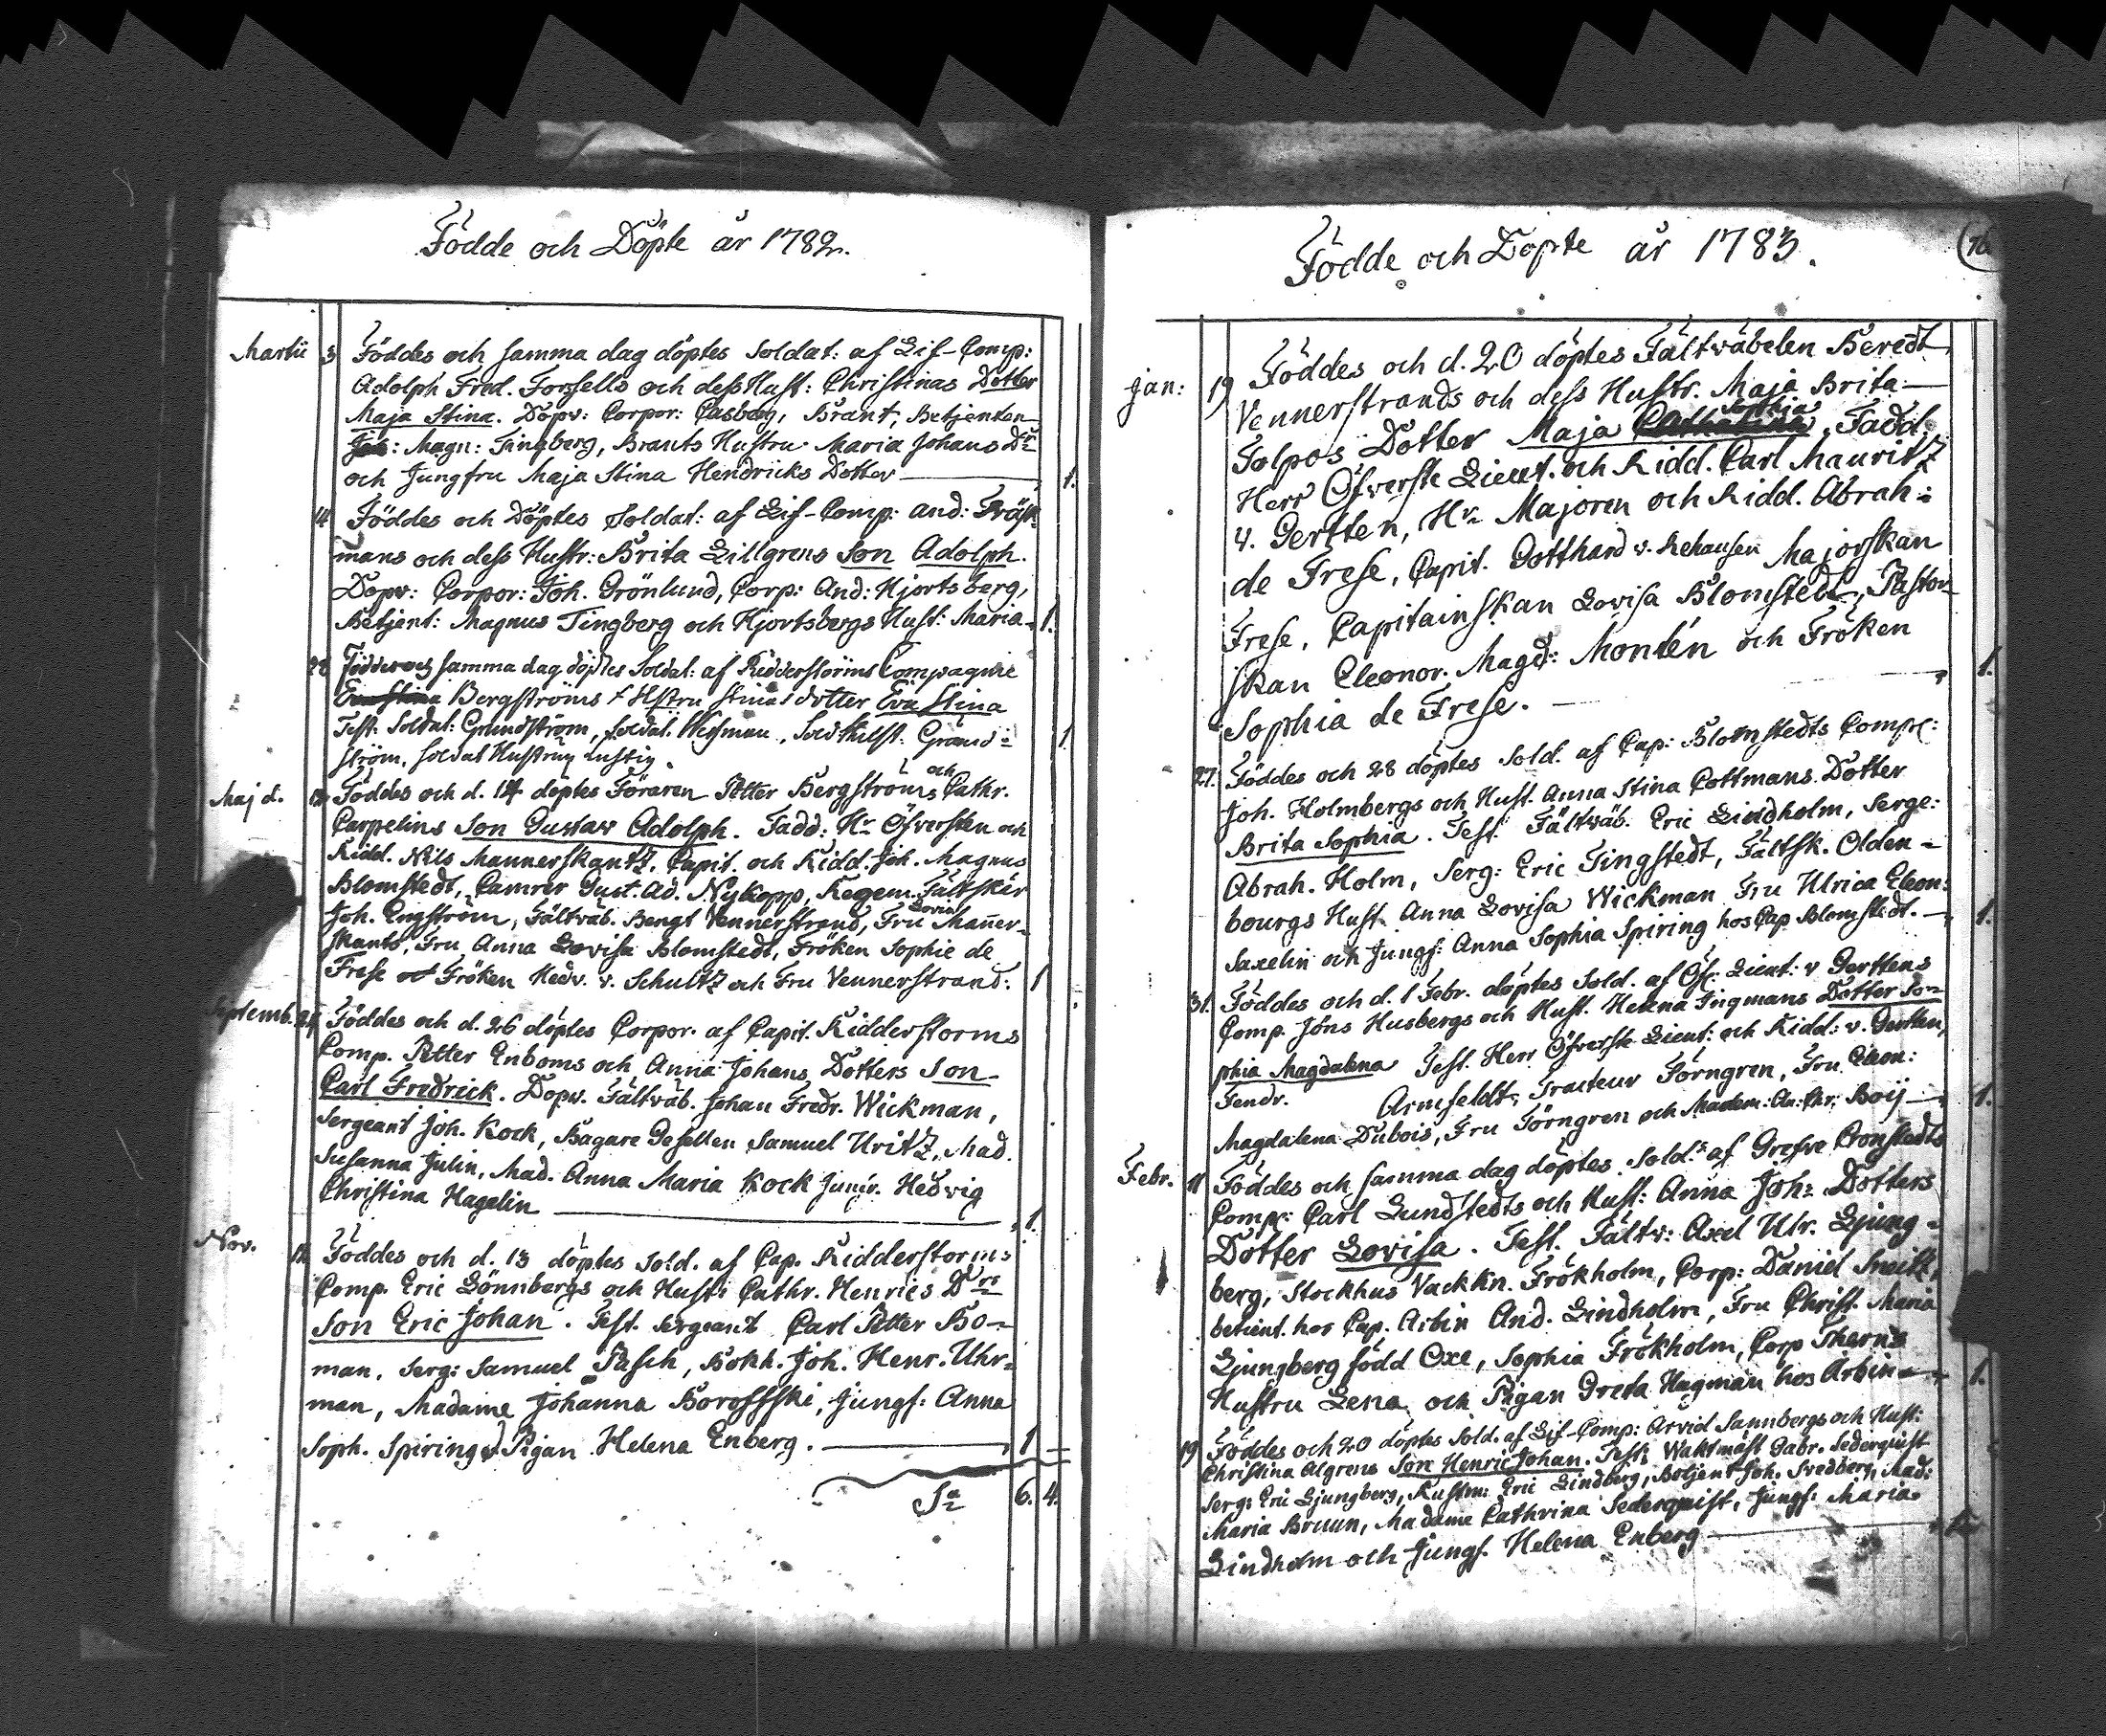 Födde och Döpte år 1782.
Martii 3 Föddes och samma dag döptes Soldat: af Lif-Comp:
Adolph Fred. Forssells och dess Hust: Christinas Dotter
Maja Stina. Döpv: Corpor: Casberg, Brant, Betjenten
Joh: Magn: Tingberg, Brants Hustru Maria Johans Dr
och Jungfru Maja Stina Hendricks Dotter 1.
Föddes och Döptes Soldat: af Lif-Comp: And: Fräsk-
mans och dess Hustr: Brita Lillgrens Son Adolph.
Döpv: Corpor: Joh. Grönlund, Corp: And: Hjortsberg,
Betjent: Magnus Tingberg och Hjortsbergs Hust: Maria 1.
28 Föddes och samma dag döptes Soldat: af Ridderstorms Compagnie
Bergströms Hstru Stinas dotter Eva Stina
Test: Soldat: Grundström, soldat. Weisman, Sold Hust: Grund-
ström, soldat Hustru Lustig. 1
Maj d. Föddes och d. 14 döptes Föraren Petter Bergströms och Cathr.
Carpelins Son Gustav Adolph. Fadd: Hr Öfversten och
Ridd. Nils Mannerskantz, Capit. och Ridd. Joh. Magnus
Blomstedt, Camrer Gust. Ad. Nykopp, Regem. Fältskär
Joh. Engström, Fältväb. Bengt Vennerstrand, Fru Lovisa Maner-
skants, Fru Anna Lovisa Blomstedt, Fröken Sophie de
Frese och Fröken Hedv. v. Schultz och Fru Vennerstrand. 1
Septemb. Föddes och d. 26 döptes Corpor. af Capit. Ridderstorms
Comp. Petter Enboms och Anna Johans Dotters Son
Carl Fredrick. Döpv. Fältväb. Johan Fredr. Wickman,
Sergeant Joh. Kock, Bagare Gesellen Samuel Uritz, Mad.
Susanna Julin, Mad. Anna Maria Kock Junir. Hedvig
Christina Hagelin 1.
Nov. 12 Föddes och d. 13 döptes Sold. af Cap. Ridderstorms
Comp. Eric Lönnbergs och Hust: Cathr. Henrics Drs
Son Eric Johan. Test. Sergeant Carl Petter Bo-
man, Serg: Samuel Pasch, Bokh. Joh. Henr. Uhr-
man, Madame Johanna Borossski, Jungf: Anna
Soph. Spiring, Pigan Helena Enberg. 1
Sa 6. 4.
Födde och Döpte år 1783.
76
Jan: 19 Föddes och d. 20 döptes Fältväbelen Beredt
Vennerstrands och dess Hustr. Maja Brita
Tolpos Dotter Maja Sophia. Fadd.
Herr Öfverste Lieut. och Ridd. Carl Mauritz
v. Gertten, Hr Majoren och Ridd. Abrah:
de Frese, Capit. Gotthard v. Rehausen Majorskan
Frese, Capitainskan Lovisa Blomstedt, Pastor-
skan Eleonor. Magd: Montén och Fröken
Sophia de Frese. 1.
27. Föddes och 28 döptes Sold. af Cap: Blomstedts Comp:
Joh. Holmbergs och Hust. Anna Stina Cottmans Dotter
Brita Sophia. Test. Fältväb. Eric Lindholm, Serge:
Abrah. Holm, Serg: Eric Tingstedt, Fältsk. Olden-
bourgs Hust. Anna Lovisa Wickman Fru Ulrica Eleon:
Saxelin och Jungf: Anna Sophia Spiring hos Cap Blomstedt. 1.
31. Föddes och d. 1 Febr. döptes Sold. af Öf: Lieut: v Gerttens
Comp. Jöns Husbergs och Hust. Helena Ingmans Dotter So-
phia Magdalena Test. Herr Öfverste Lieut: och Ridd: v. Gertten,
Fendr. Armfeldt, Tracteur Törngren, Fru Eleon:
Magdalena Dubois, Fru Törngren och Madem: An: Chr: Boij 1.
Febr. 11 Föddes och samma dag döptes Sold. af Grefve Cronstedts
Comp: Carl Lundstedts och Hust: Anna Joh: Dotters
Dotter Lovisa. Test. Fältv: Axel Ulr. Ljung-
berg, Stockhus Vacktn. Frökholm, Corp: Daniel
betient. hos Cap. Arbin And. Lindholm, Fru Christ. Maria
Ljungberg född Oxe, Sophia Frökholm, Corp Therns
Hustru Lena och Pigan Greta Hagman hos Arbin 1.
19 Föddes och 20 döptes Sold. af Lif-Comp: Arvid Sannbergs och Hust:
Christina Algrens Son Henric Johan. Test: Waktmäst Gabr. Sederquist
Serg: Eric Ljungberg, Rustm: Eric Lindberg, Betjent Joh. Svedberg, Mad:
Maria Bruun, Madame Cathrina Sederquist, Jungf: Maria
Lindholm och Jungf. Helena Enberg